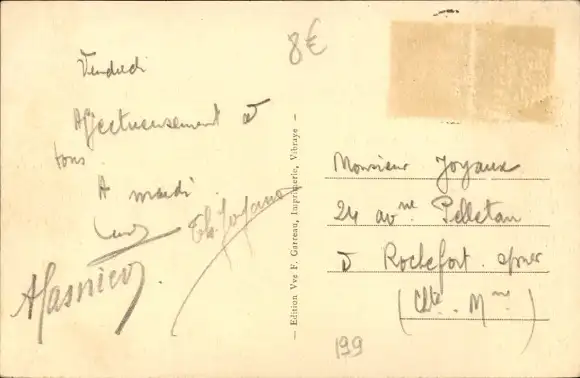 8€
Vendredi
Affectueusement à
tous
A mardi.
— Edition Vve F. Garreau, Imprimerie, Vibraye —
Monsieur Joyaux
24 avne Pelletan
à Rochefort s/mer
(Chte. Mme)
199